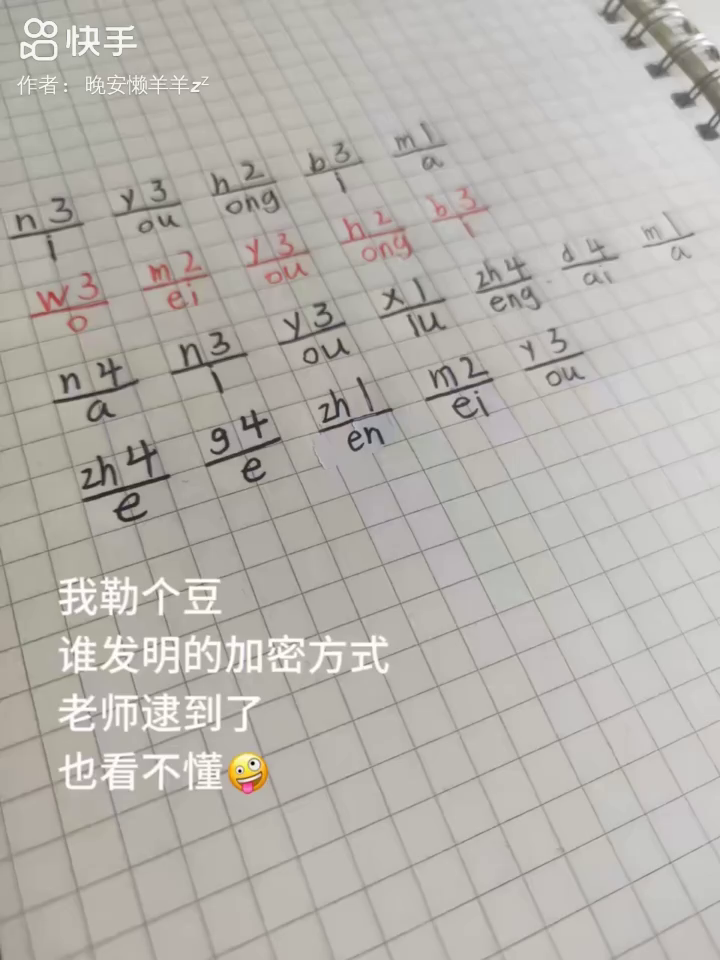 快手
作者：晚安懒羊羊zᶻ
n3/i y3/ou h2/ong b3/i m1/a
w3/o m2/ei y3/ou h2/ong b3/i
n4/a n3/i y3/ou x1/iu zh4/eng d4/ai m1/a
zh4/e g4/e zh1/en m2/ei y3/ou
我勒个豆
谁发明的加密方式
老师逮到了
也看不懂🤪